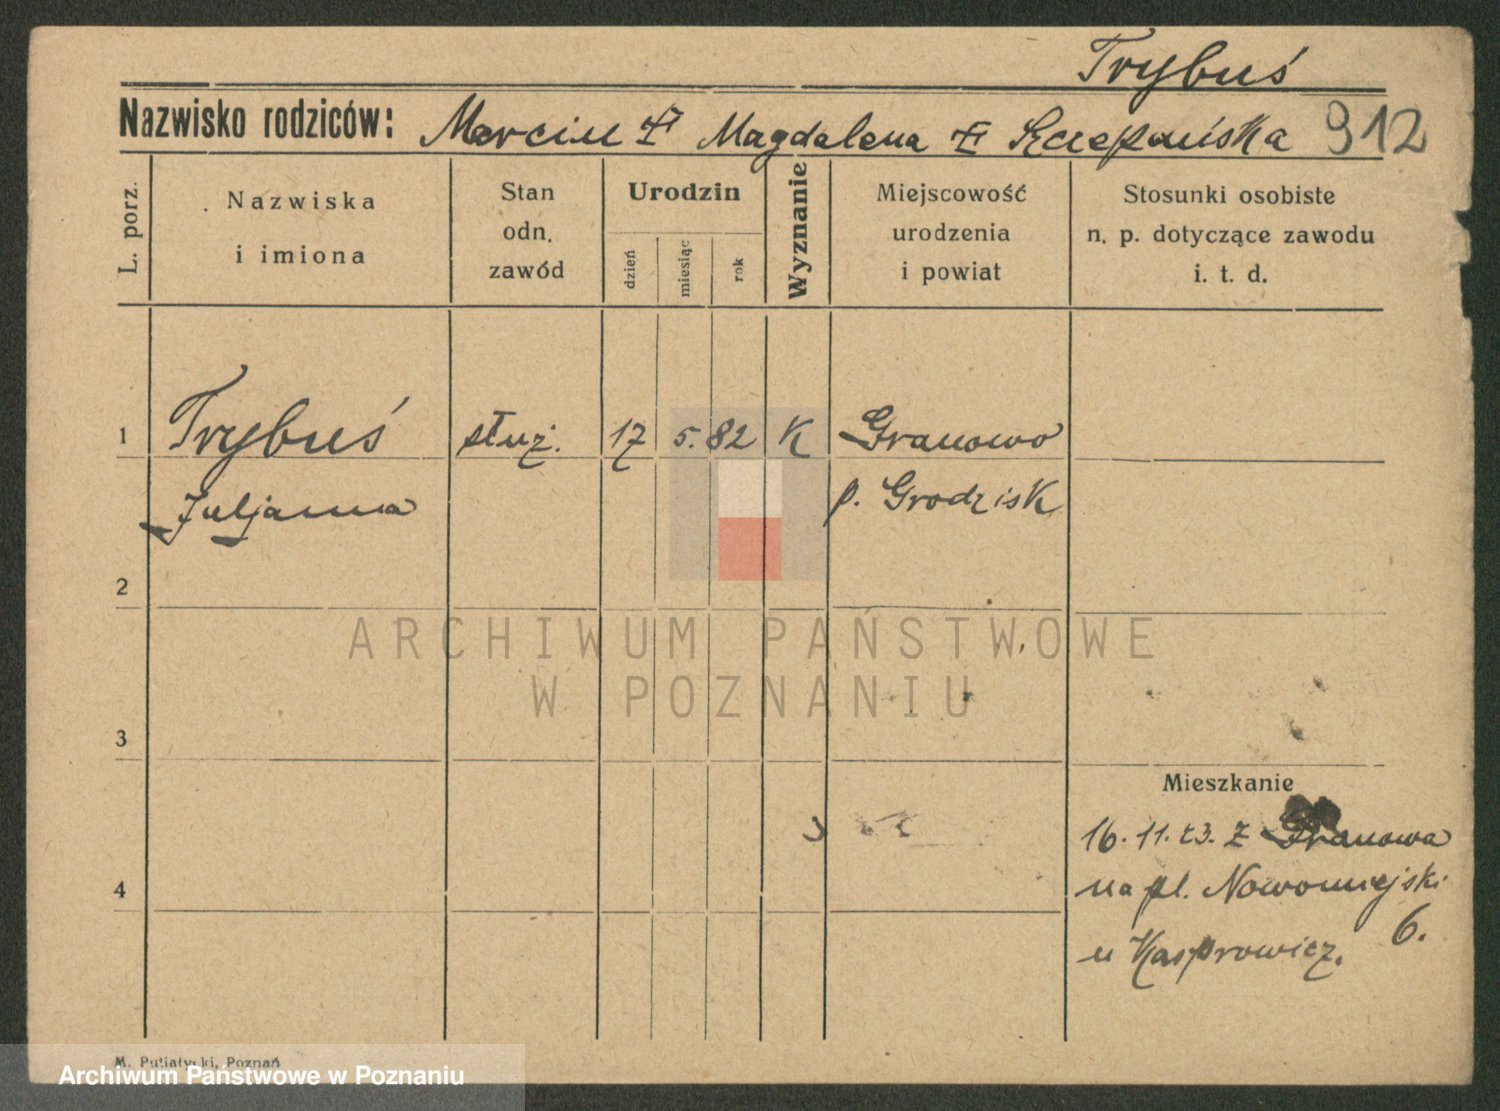 Trybuś
Nazwisko rodziców: Marcin Magdalena Szczepańska 912
L. porz.
Nazwiska
i imiona
Stan
odn.
zawód
Urodzin
dzień
miesiąc
rok
Wyznanie
Miejscowość
urodzenia
i powiat
Stosunki osobiste
n. p. dotyczące zawodu
i. t. d.
1 Trybuś służ. 17 5. 82 K Granowo
Juljanna p. Grodzisk
2
ARCHIWUM PAŃSTWOWE
W POZNANIU
3
Mieszkanie
16. 11. 23. z Granowa
4 na pl. Nowomiejski
6.
u Kasprowicz.
M. Putiatycki, Poznań
Archiwum Państwowe w Poznaniu